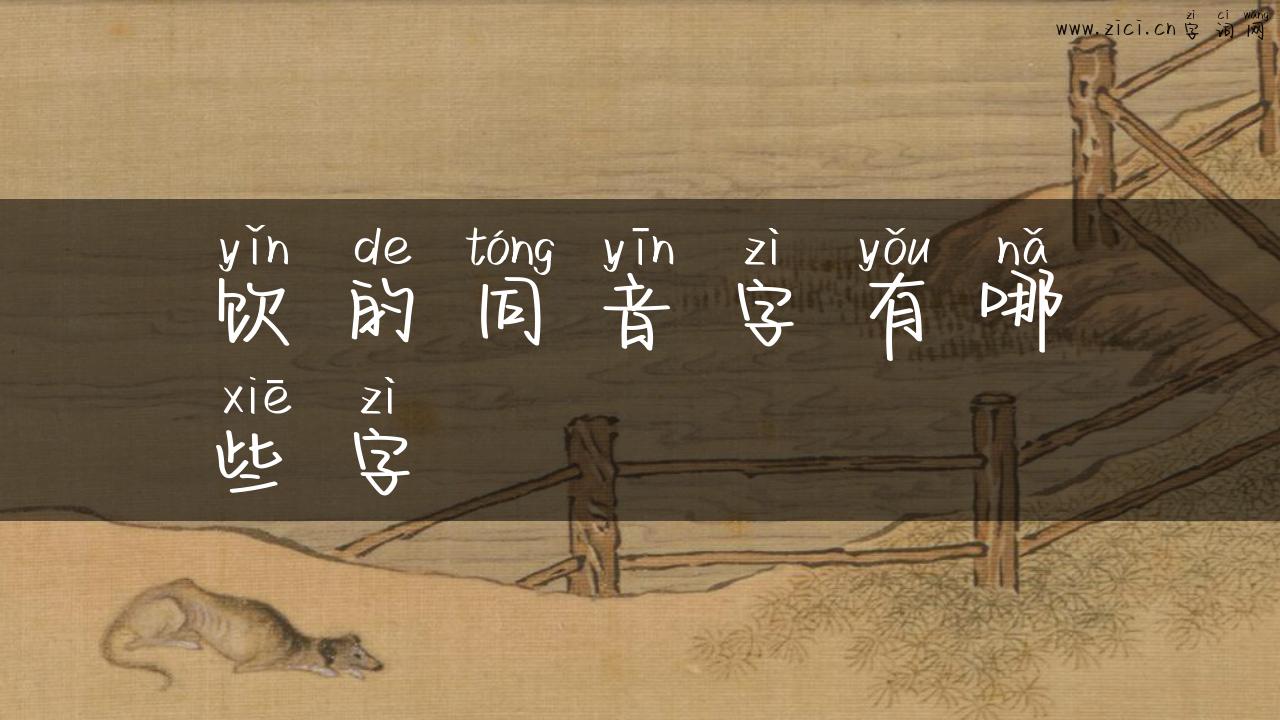 zì cí wǎng
www.zici.cn字词网
yǐn de tóng yīn zì yǒu nǎ
饮的同音字有哪
xiē zì
些字